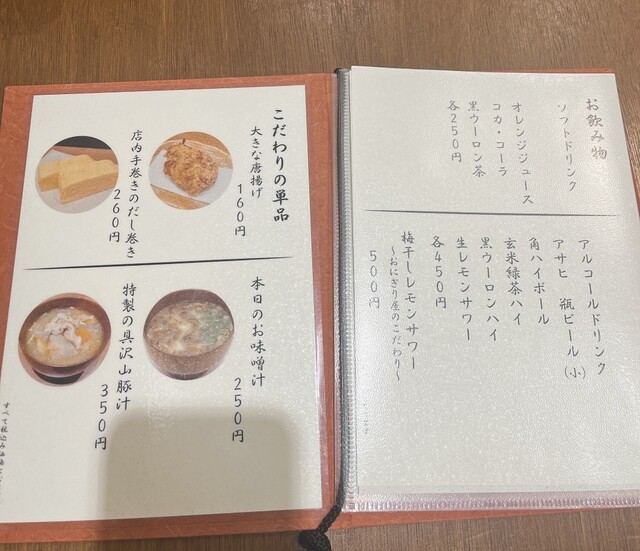 お飲み物
ソフトドリンク
オレンジジュース
コカ・コーラ
黒ウーロン茶
各250円
アルコールドリンク
アサヒ 瓶ビール(小)
角ハイボール
玄米緑茶ハイ
黒ウーロンハイ
生レモンサワー
各450円
梅干しレモンサワー
〜おにぎり屋のこだわり〜
500円
こだわりの単品
大きな唐揚げ
160円
店内手巻きのだし巻き
260円
本日のお味噌汁
250円
特製の具沢山豚汁
350円
すべて税込み